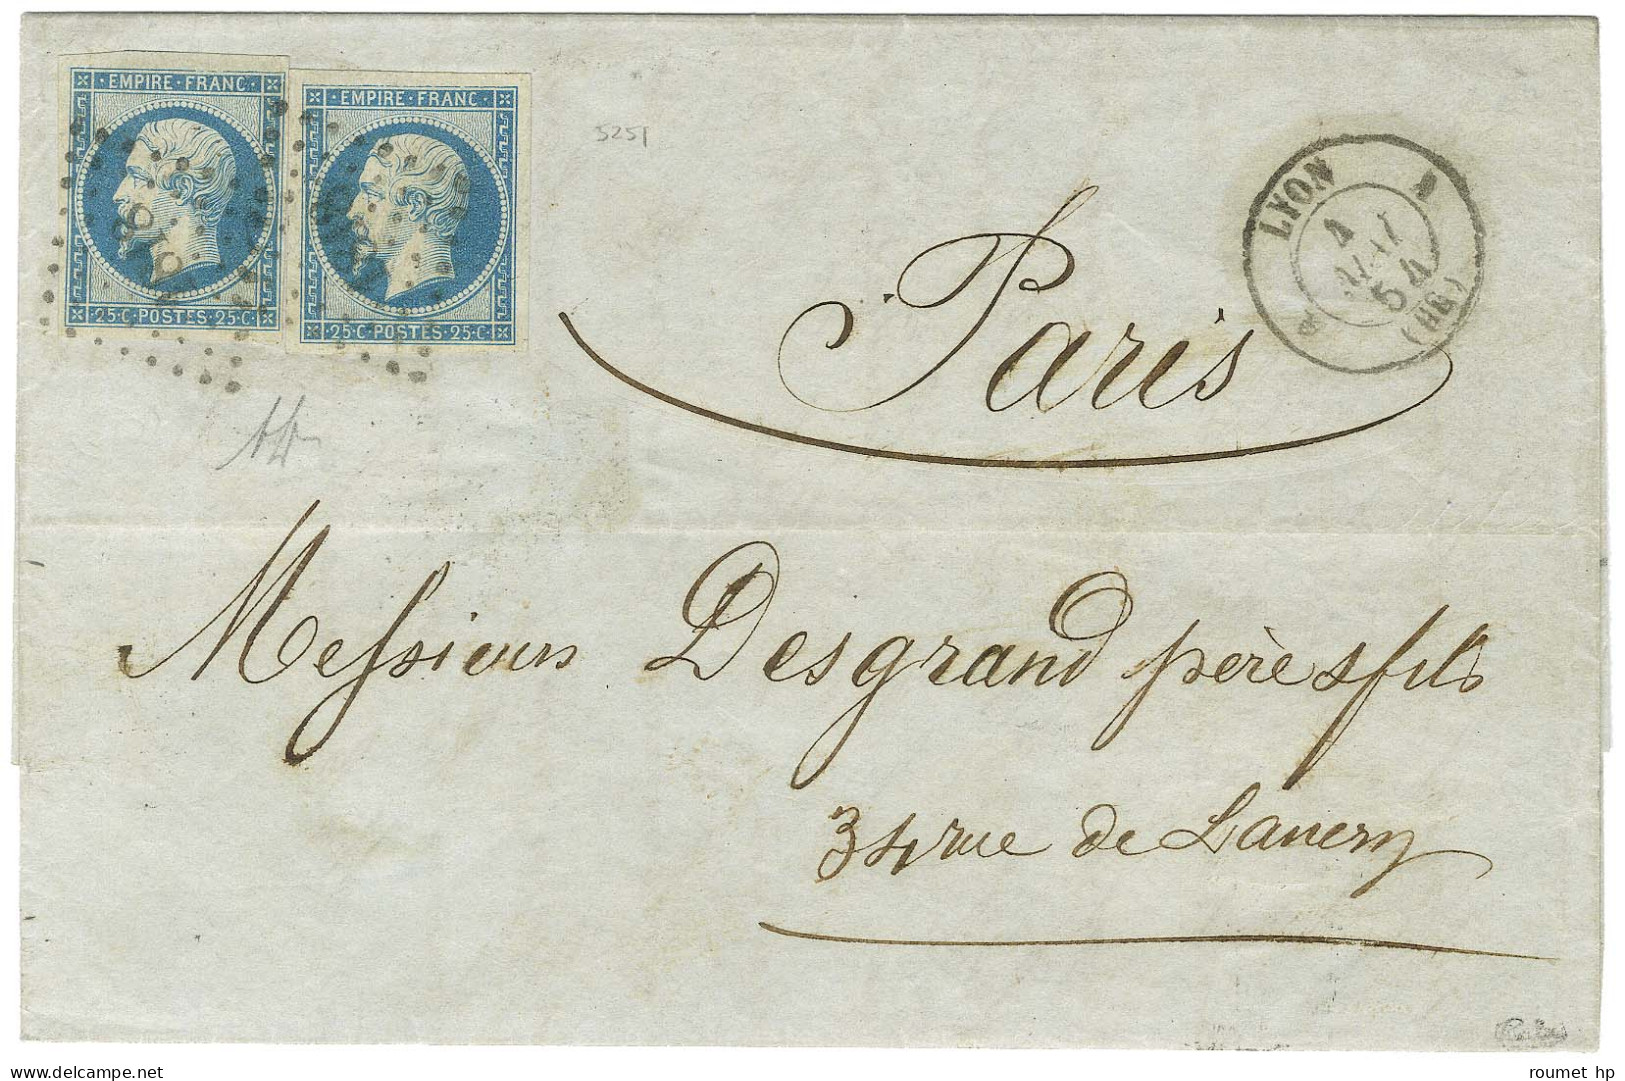 EMPIRE · FRANC ·
25 · C · POSTES · 25 · C
EMPIRE · FRANC ·
25 · C · POSTES · 25 · C
5251
LYON
1
MAI
54
(68)
Paris
Messieurs Desgrand père & fils
34 rue de Lancry
roumet hp